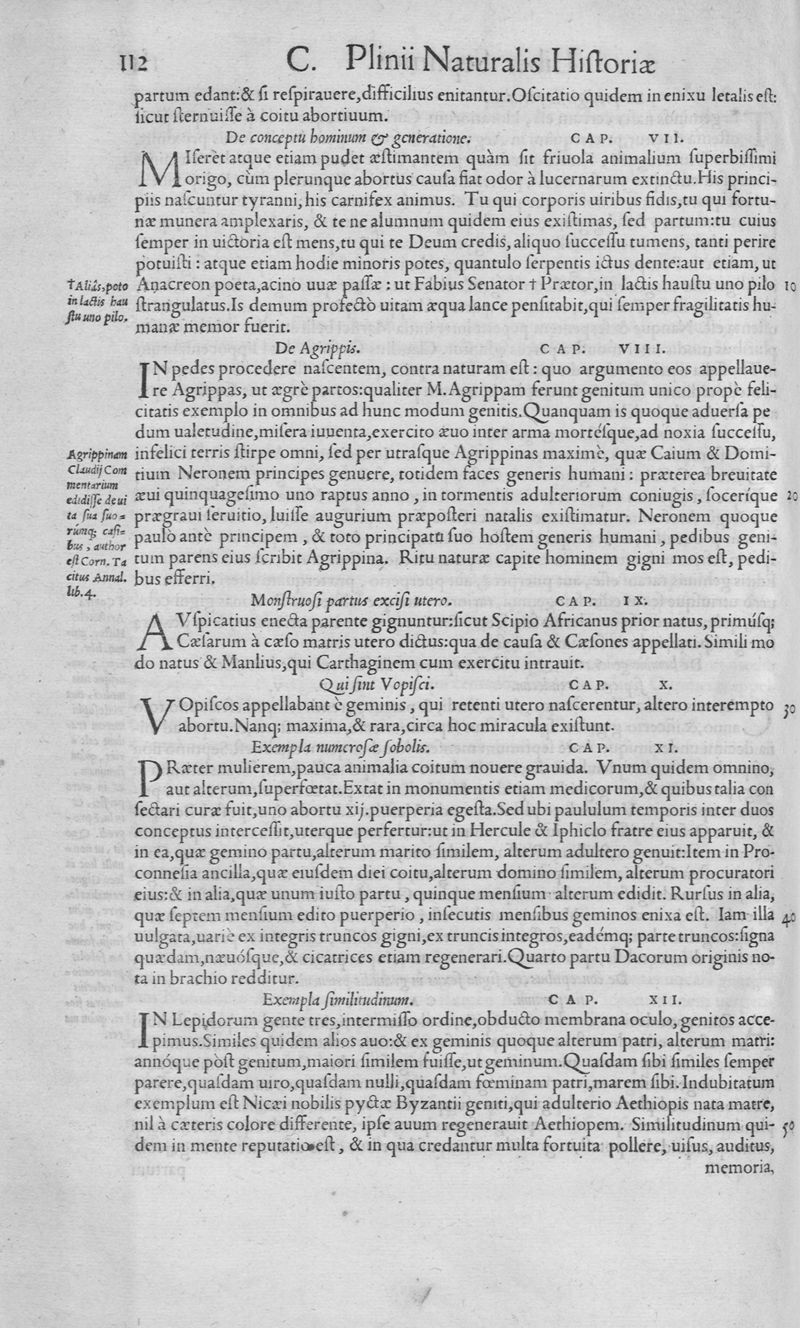 112 C. Plinii Naturalis Hiſtoriæ
partum edant:& ſi reſpirauere,difficilius enitantur.Oſcitatio quidem in enixu letalis eſt:
ſicut ſternuiſſe à coitu abortiuum.
De conceptu hominum & generatione. CAP. VII.
MIſeret atque etiam pudet æſtimantem quàm ſit friuola animalium ſuperbiſſimi
origo, cùm plerunque abortus cauſa fiat odor à lucernarum extinctu.His princi-
piis naſcuntur tyranni, his carnifex animus. Tu qui corporis uiribus fidis,tu qui fortu-
næ munera amplexaris, & te ne alumnum quidem eius exiſtimas, ſed partum:tu cuius
ſemper in uictoria eſt mens,tu qui te Deum credis, aliquo ſucceſſu tumens, tanti perire
potuiſti : atque etiam hodie minoris potes, quantulo ſerpentis ictus dente:aut etiam, ut
†Aliás,poto
in lactis hau
ſtu uno pilo.
Anacreon poëta,acino uuæ paſſæ : ut Fabius Senator † Prætor,in lactis hauſtu uno pilo 10
ſtrangulatus.Is demum profectò uitam æqua lance penſitabit,qui ſemper fragilitatis hu-
manæ memor fuerit.
De Agrippis. CAP. VIII.
IN pedes procedere naſcentem, contra naturam eſt : quo argumento eos appellaue-
re Agrippas, ut ægrè partos:qualiter M. Agrippam ferunt genitum unico propè feli-
citatis exemplo in omnibus ad hunc modum genitis.Quanquam is quoque aduerſa pe
dum ualetudine,miſera iuuenta,exercito æuo inter arma mortéſque,ad noxia ſucceſſu,
Agrippinam
Claudij Com
mentarium
edidiſſe de ui
ta ſua ſuo=
rúmq; caſi=
bus , author
eſt Corn. Ta
citus Annal.
lib.4.
infelici terris ſtirpe omni, ſed per utraſque Agrippinas maximè, quæ Caium & Domi-
tium Neronem principes genuere, totidem faces generis humani : præterea breuitate
æui quinquageſimo uno raptus anno , in tormentis adulteriorum coniugis , ſoceríque 20
prægraui ſeruitio, luiſſe augurium præpoſteri natalis exiſtimatur. Neronem quoque
paulò antè principem , & toto principatu ſuo hoſtem generis humani , pedibus geni-
tum parens eius ſcribit Agrippina. Ritu naturæ capite hominem gigni mos eſt, pedi-
bus efferri.
Monſtruoſi partus exciſi utero. CAP. IX.
AVſpicatius enecta parente gignuntur:ſicut Scipio Africanus prior natus, primúſq;
Cæſarum à cæſo matris utero dictus:qua de cauſa & Cæſones appellati. Simili mo
do natus & Manlius,qui Carthaginem cum exercitu intrauit.
Qui ſint Vopiſci. CAP. X.
VOpiſcos appellabant è geminis , qui retenti utero naſcerentur, altero interempto 30
abortu.Nanq; maxima,& rara,circa hoc miracula exiſtunt.
Exempla numeroſæ ſobolis. CAP. XI.
PRæter mulierem,pauca animalia coitum nouere grauida. Vnum quidem omnino,
aut alterum,ſuperfœtat.Extat in monumentis etiam medicorum,& quibus talia con
ſectari curæ fuit,uno abortu xij.puerperia egeſta.Sed ubi paululum temporis inter duos
conceptus interceſſit,uterque perfertur:ut in Hercule & Iphiclo fratre eius apparuit, &
in ea,quæ gemino partu,alterum marito ſimilem, alterum adultero genuit:Item in Pro-
conneſia ancilla,quæ eiuſdem diei coitu,alterum domino ſimilem, alterum procuratori
eius:& in alia,quæ unum iuſto partu , quinque menſium alterum edidit. Rurſus in alia,
quæ ſeptem menſium edito puerperio , inſecutis menſibus geminos enixa eſt. Iam illa 40
uulgata,uariè ex integris truncos gigni,ex truncis integros,eadémq; parte truncos:ſigna
quædam,næuóſque,& cicatrices etiam regenerari.Quarto partu Dacorum originis no-
ta in brachio redditur.
Exempla ſimilitudinum. CAP. XII.
IN Lepidorum gente tres,intermiſſo ordine,obducto membrana oculo, genitos acce-
pimus.Similes quidem alios auo:& ex geminis quoque alterum patri, alterum matri:
annóque pòſt genitum,maiori ſimilem fuiſſe,ut geminum.Quaſdam ſibi ſimiles ſemper
parere,quaſdam uiro,quaſdam nulli,quaſdam fœminam patri,marem ſibi.Indubitatum
exemplum eſt Nicæi nobilis pyctæ Byzantii geniti,qui adulterio Aethiopis nata matre,
nil à cæteris colore differente, ipſe auum regenerauit Aethiopem. Similitudinum qui- 50
dem in mente reputatio eſt , & in qua credantur multa fortuita pollere, uiſus, auditus,
memoria,